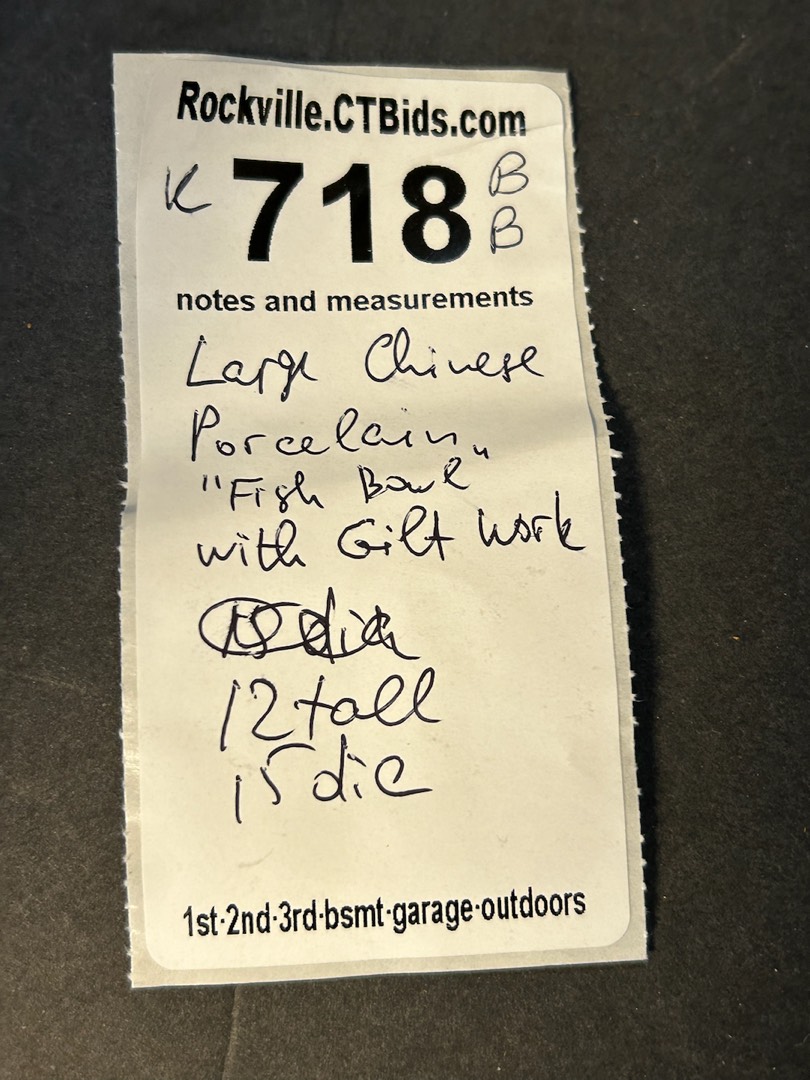 Rockville.CTBids.com
K 718 B
B
notes and measurements
Large Chinese
Porcelain
"Fish Bowl"
with Gilt work
12 tall
15 dia
1st·2nd·3rd·bsmt·garage·outdoors